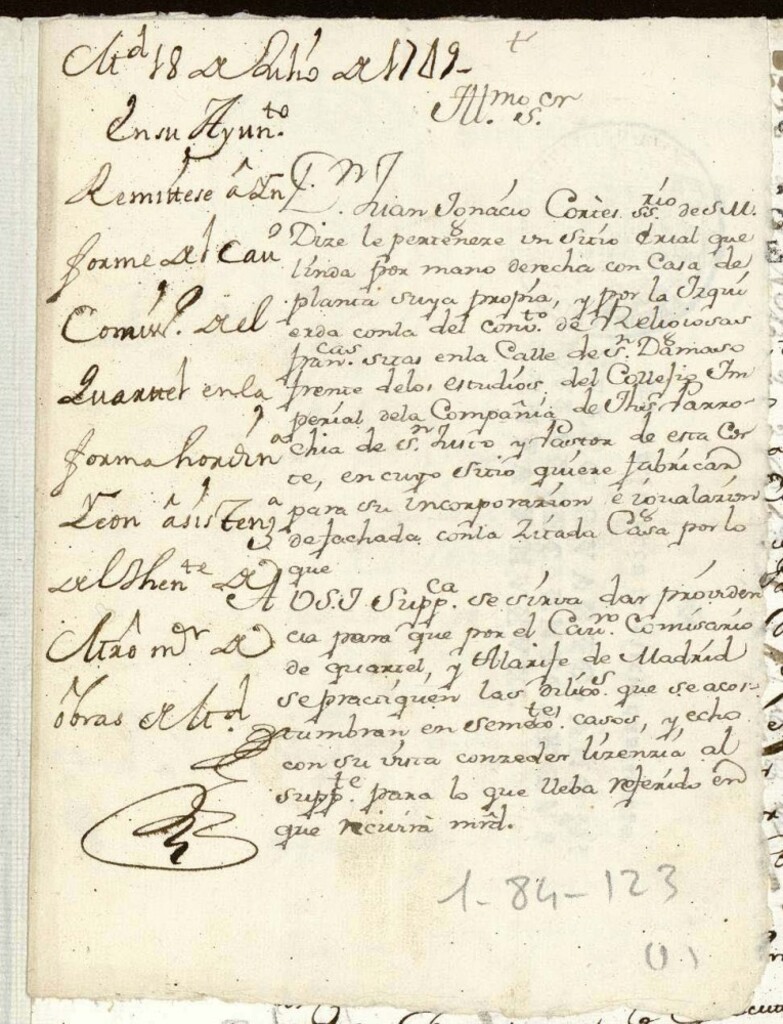 Md 18 de Julio de 1749-
En su Ayunto.
Remittese â Yn
forme del Cavo
Comisso. del
Quartel en la
forma hordina
Y con âsistenza
del Thente. de
Mro mr de
obras de Md.
+
Illmo. Sr.
D. Juan Ignacio Cortes ssrio. de S.M.
Dize le perteneze un sitio erial que
linda por mano derecha con Casa de
planta suya propia, y por la Izqui
erda con la del Convto. de Religiosas
Francas. sitas en la Calle de Sn. Damaso
frente de los estudios del Collegio Im
perial de la Compañia de Jhs Parro-
chia de Sn. Justo y Pastor de esta Cor
te, en cuyo sitio quiere fabricar
para su incorporazion è igualazion
de fachada con la Zitada Casa por lo
que
A V.S.I. Suppca. se sirva dar providen
cia para que por el Cavro. Comisario
de quartel, y Alarife de Madrid
se practiquen las diligs. que se acos
tumbran en semetes. casos, y echo
con su vista conzeder lizenzia al
suppte. para lo que lleba referido en
que recivirà mrd.
1-84-123